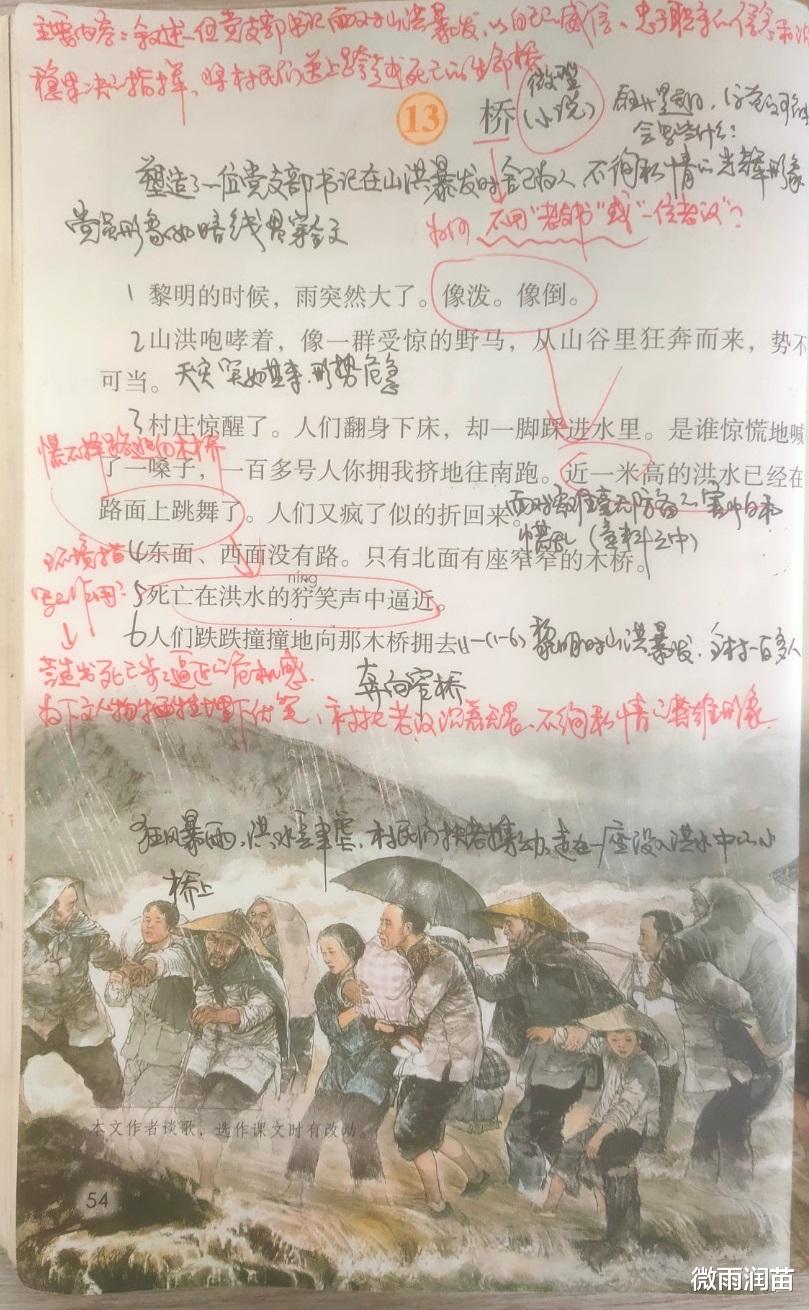 主要内容：叙述一位党支部书记面对山洪暴发，以自己的威信、忠于职守的信念和沉
稳果决的指挥，将村民们送上跨越死亡的生命桥
13 桥 (微型小说)
会写些什么？
塑造了一位党支部书记在山洪暴发时舍己为人 不徇私情的光辉形象
党员形象如暗线贯穿全文
为何 不用"老支书"或"一位老汉"？
1 黎明的时候，雨突然大了。像泼。像倒。
2 山洪咆哮着，像一群受惊的野马，从山谷里狂奔而来，势不
可当。 天灾突如其来.形势危急
3 村庄惊醒了。人们翻身下床，却一脚踩进水里。是谁惊慌地喊
了一嗓子，一百多号人你拥我挤地往南跑。近一米高的洪水已经在
路面上跳舞了。人们又疯了似的折回来。
4 东面、西面没有路。只有北面有座窄窄的木桥。
环境描写的作用？
níng
5 死亡在洪水的狞笑声中逼近。
6 人们跌跌撞撞地向那木桥拥去
一(1-6) 黎明时山洪暴发．全村一百多人
奔向窄桥
营造出死亡步步逼近的危机感.
为下文人物牺牲埋下伏笔、衬托老汉沉着无畏、不徇私情的英雄形象
狂风暴雨，洪水肆虐，村民们扶老携幼，走在一座没入洪水中的小
桥上
本文作者谈歌，选作课文时有改动。
54
微雨润苗